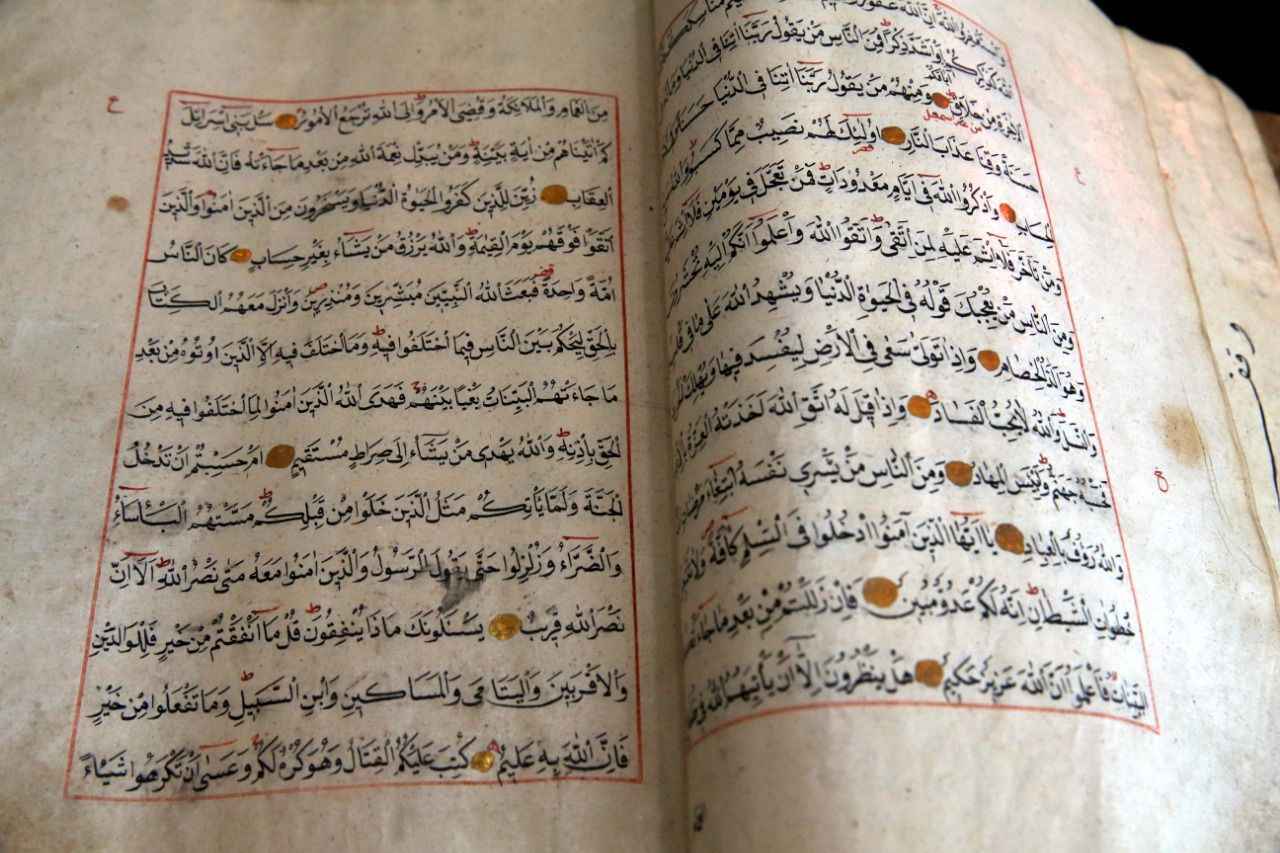 تذكركم
فاذكروا الله
او اشد ذكرا فمن الناس من يقول ربنا اتنا فى الدنيا
الاخرة من خلاق ومنهم من يقول ربنا اتنا فى الدنيا حسنة
حسنة وقنا عذاب النار اولئك لهم نصيب مما كسبوا والله
الحساب واذكروا الله فى ايام معدودات فمن تعجل فى يومين فلا اثم
ومن تاخر فلا اثم عليه لمن اتقى واتقوا الله واعلموا انكم اليه تحشرون
ومن الناس من يعجبك قوله فى الحيوة الدنيا ويشهد الله على ما فى قلبه
وهو الد الخصام واذا تولى سعى فى الارض ليفسد فيها ويهلك الحرث
والنسل والله لا يحب الفساد واذا قيل له اتق الله اخذته العزة
فحسبه جهنم ولبئس المهاد ومن الناس من يشرى نفسه ابتغاء مرضات
والله رؤف بالعباد يا ايها الذين آمنوا ادخلوا فى السلم كافة ولا
خطوات الشيطان انه لكم عدو مبين فان زللتم من بعد ما جاءتكم
البينات فاعلموا ان الله عزيز حكيم هل ينظرون الا ان ياتيهم الله فى
من الغمام والملائكة وقضى الامر والى الله ترجع الامور سل بنى اسرائل
كم اتيناهم من اية بينة ومن يبدل نعمة الله من بعد ما جاءته فان الله شديد
العقاب زين للذين كفروا الحيوة الدنيا ويسخرون من الذين امنوا والذين
اتقوا فوقهم يوم القيمة والله يرزق من يشاء بغير حساب كان الناس
امة واحدة فبعث الله النبيين مبشرين ومنذرين وانزل معهم الكتاب
بالحق ليحكم بين الناس فيما اختلفوا فيه وما اختلف فيه الا الذين اوتوه من بعد
ما جاءتهم البينات بغيا بينهم فهدى الله الذين امنوا لما اختلفوا فيه من
الحق باذنه والله يهدى من يشاء الى صراط مستقيم ام حسبتم ان تدخلوا
الجنة ولما ياتكم مثل الذين خلوا من قبلكم مستهم الباساء
والضراء وزلزلوا حتى يقول الرسول والذين امنوا معه متى نصر الله الا ان
نصر الله قريب يسئلونك ماذا ينفقون قل ما انفقتم من خير فللوالدين
والاقربين واليتامى والمساكين وابن السبيل وما تفعلوا من خير
فان الله به عليم كتب عليكم القتال وهو كره لكم وعسى ان تكرهوا شيئا